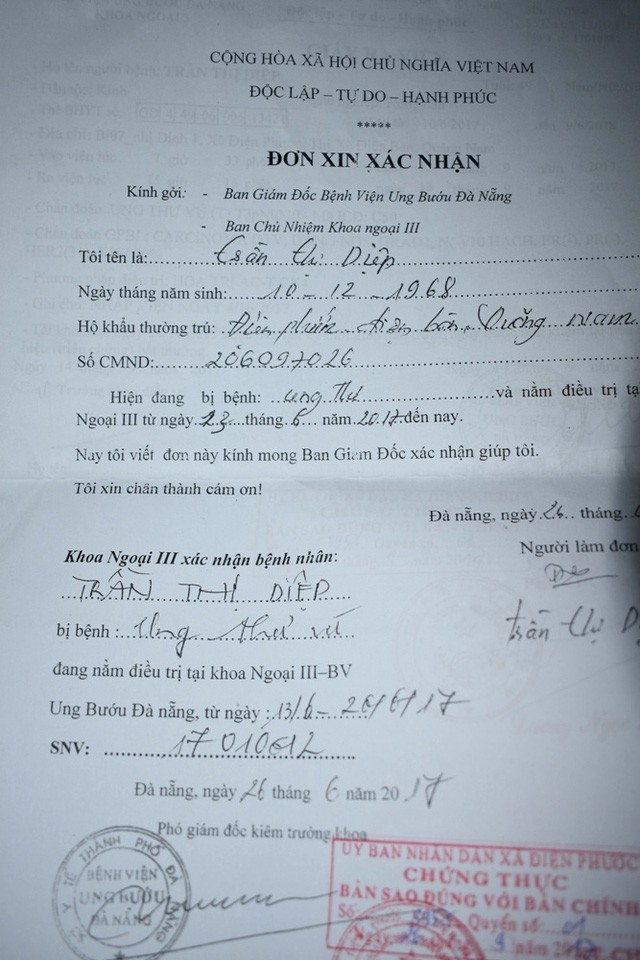 CỘNG HÒA XÃ HỘI CHỦ NGHĨA VIỆT NAM
ĐỘC LẬP – TỰ DO – HẠNH PHÚC
*****
ĐƠN XIN XÁC NHẬN
Kính gởi: - Ban Giám Đốc Bệnh Viện Ung Bướu Đà Nẵng
- Ban Chủ Nhiệm Khoa ngoại III
Tôi tên là: Trần Thị Diệp
Ngày tháng năm sinh: 10 - 12 - 1968
Hộ khẩu thường trú: Điện phước - điện bàn, Quảng nam.
Số CMND: 206097026
Hiện đang bị bệnh: ung thư và nằm điều trị tạ
Ngoại III từ ngày 13 tháng 6 năm 2017 đến nay.
Nay tôi viết đơn này kính mong Ban Giám Đốc xác nhận giúp tôi.
Tôi xin chân thành cám ơn!
Đà nẵng, ngày 26 tháng
Người làm đơn
Trần Thị D
Khoa Ngoại III xác nhận bệnh nhân:
TRẦN THỊ DIỆP
bị bệnh: Ung thư vú
đang nằm điều trị tại khoa Ngoại III–BV
Ung Bướu Đà nẵng, từ ngày: 13/6 - 26/6/17
SNV: 17010612
Đà nẵng, ngày 26 tháng 6 năm 2017
Phó giám đốc kiêm trưởng khoa
SỞ Y TẾ THÀNH PHỐ ĐÀ NẴNG
BỆNH VIỆN
UNG BƯỚU
ĐÀ NẴNG
ỦY BAN NHÂN DÂN XÃ ĐIỆN PHƯỚC
CHỨNG THỰC
BẢN SAO ĐÚNG VỚI BẢN CHÍNH
Số: Quyển số: 01
Ngày năm 20